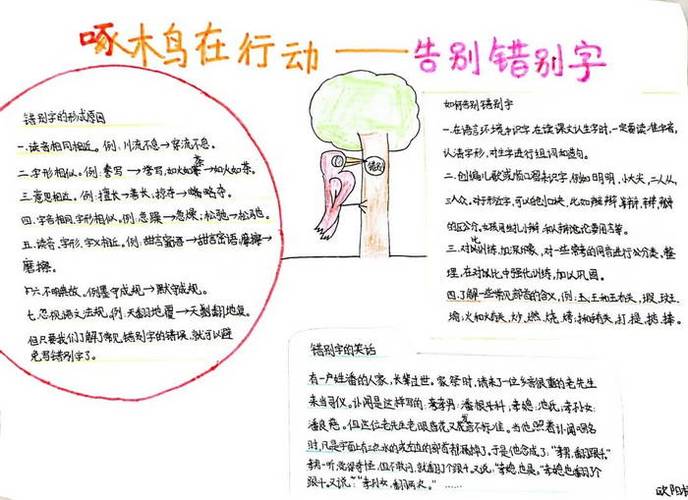 啄木鸟在行动——告别错别字
错别字的形成原因
一.读音相同相近。例:川流不息→穿流不息。
二.字形相似。例:
如火如荼→如火如茶。
三.意见相近。例:擅长→善长;掠夺→
四.字音相同,字形相似。例:急躁→急燥;松弛→松驰。
五.读音、字形、字义相近。例:甜言蜜语→甜言密语;摩擦→
磨擦。
六.不明典故。例墨守成规→默守成规。
七.忽视语文法规。例:天翻地覆→天翻地复。
但只要我们了解了常见错别字的错误,就可以避
免写错别字了。
错别
如何告别错别字
一.在语言环境中识字,在读课文认生字时,一定要读准字音,
认清字形,对生字进行组词和造句。
二.创编儿歌或顺口溜来识字,例如日月明,小大尖,二人从,
三人众。对于形近字,可以创口诀,比如辩辨
的区分
三.对比训练,加深印象,对一些常考的同音进行分类、整
理,在对比中强化训练,加以巩固。
四.了解一些常见部首的含义,例:
火和火有关,炒、燃、烧、烤;扌和手有关,打、提、挑、捧。
错别字的笑话
有一户姓潘的人家,长辈过世。家祭时,请来了一位乡音很重的老先生
来当司仪。讣闻是这样写的:孝男:潘根科,孝媳:池氏,孝孙女:
潘良慈。但这位老先生老眼昏花又发音不标准。当他照着讣闻唱名
时,凡是字面上有三点水的或左边的部首都漏掉了。于是他念成了:“孝男,翻跟斗。”
孝男一听,觉得奇怪,但不敢问,就翻了个跟斗。又说:“孝媳,也是。”孝媳也翻了个
跟斗。又说:“孝孙女,翻两次。”……